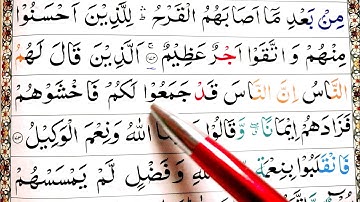 مِنْۢ بَعْدِ مَاۤ اَصَابَهُمُ الْقَرْحُ ؕ لِلَّذِیْنَ اَحْسَنُوْا
مِنْهُمْ وَاتَّقَوْا اَجْرٌ عَظِیْمٌ ۚ اَلَّذِیْنَ قَالَ لَهُمُ
النَّاسُ اِنَّ النَّاسَ قَدْ جَمَعُوْا لَكُمْ فَاخْشَوْهُمْ
فَزَادَهُمْ اِیْمَانًا ۖ وَّقَالُوْا اللّٰهُ وَنِعْمَ الْوَكِیْلُ
فَانْقَلَبُوْا بِنِعْمَةٍ اللّٰهِ وَفَضْلٍ لَّمْ یَمْسَسْهُمْ